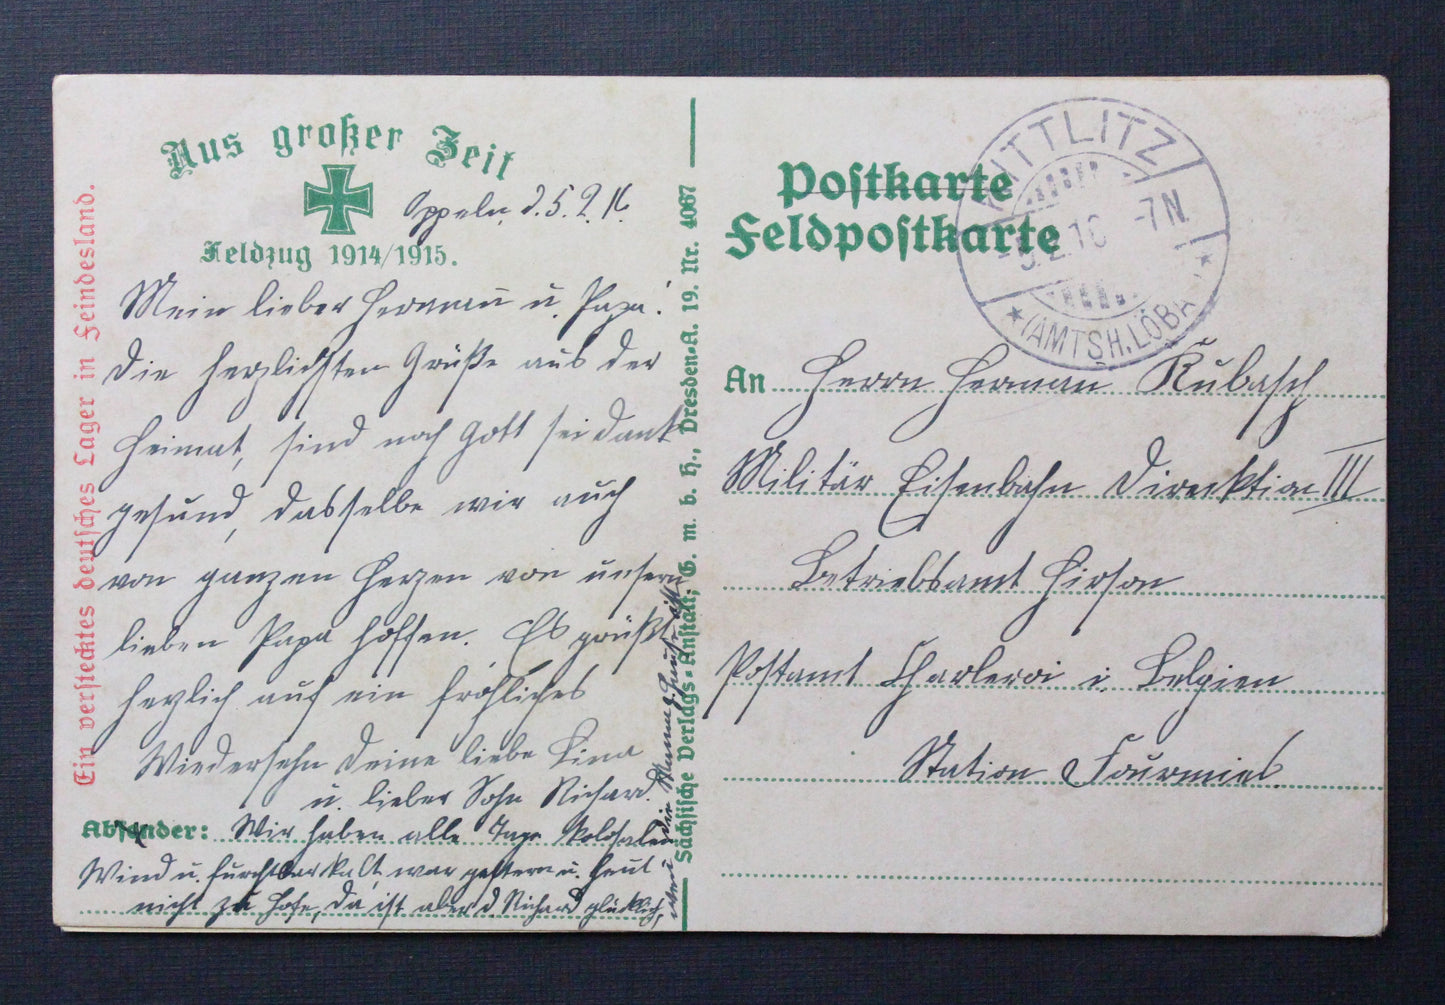 Aus großer Zeit
Feldzug 1914/1915.
Oppeln, d. 5. 2. 16.
Mein lieber Hermann u. Papa!
Die herzlichsten Grüße aus der
Heimat, sind noch Gott sei dank
gesund, dasselbe wir auch
von ganzen Herzen von unsern
lieben Papa hoffen. Es grüßt
herzlich auf ein fröhliches
Wiedersehn Deine liebe Lina
u. lieber Sohn Richard.
Absender: Wir haben alle Tage kolosalen
Wind u. furchtbar kalt war gestern u. heut
nicht zu Hofe, da ist aber d Richard glücklich,
wen die Mama zu Hause ist
Ein verstecktes deutsches Lager in Feindesland.
Sächsische Verlags-Anstalt, G. m. b. H., Dresden-A. 19. Nr. 4067
Postkarte
Feldpostkarte
KITTLITZ
-5.2.16 -7N.
(AMTSH. LÖBA
An Herrn Herman Kubasch
Militär Eisenbahn Direcktion III
Betriebsamt Hirson
Postamt Charleroi i. Belgien
Station Fourmies